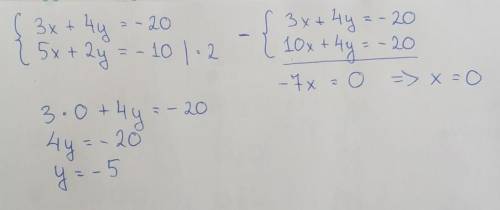 3x + 4y = -20
5x + 2y = -10 | · 2
- { 3x + 4y = -20
10x + 4y = -20
-7x = 0 => x = 0
3 · 0 + 4y = -20
4y = -20
y = -5